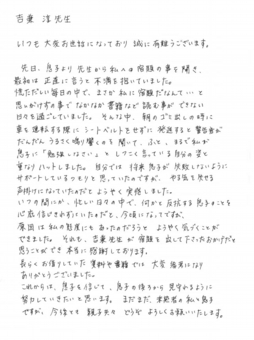 吉乗 淳先生
いつも大変お世話になっており誠に有難うございます。
先日、息子より先生から私への宿題の事を聞き、
最初は正直に言うと不満を抱いていました。
慌ただしい毎日の中で、まさか私に宿題だなんて…と
思いがけずの事でなかなか書籍など読む事ができない
日々を過ごしていました。そんな中、朝のゴミ出しの時に
車を運転する際にシートベルトをせずに発進すると警告音が
だんだんうるさく鳴り響くのを聞いて、ふと、まるで私が
息子に「勉強しなさい」としつこく言っている自分の姿と
重なりハットしました。自分では将来息子が失敗しないように
サポートしているつもりと思っていたのですが、やる気を失せる
声掛けになっていたのだとようやく実感しました。
いつの間にか、忙しい日々の中で、何かと反抗する息子のことを
心底信じきれずにいたのだと、今頃になってですが、
原因は私の態度にもあったのだろうとようやく気づくことが
できました。それも、吉乗先生が宿題を出して下さったおかげだと
思うことができ本当に感謝しております。
長らくお借りしていた資料や書籍では大変勉強になり
ありがとうございました。
これからは、息子を信じて、息子の後ろから見守れるように
努力していきたいと思います。まだまだ、未熟者の私と息子
ですが、今後とも親子共々どうぞよろしくお願いいたします。